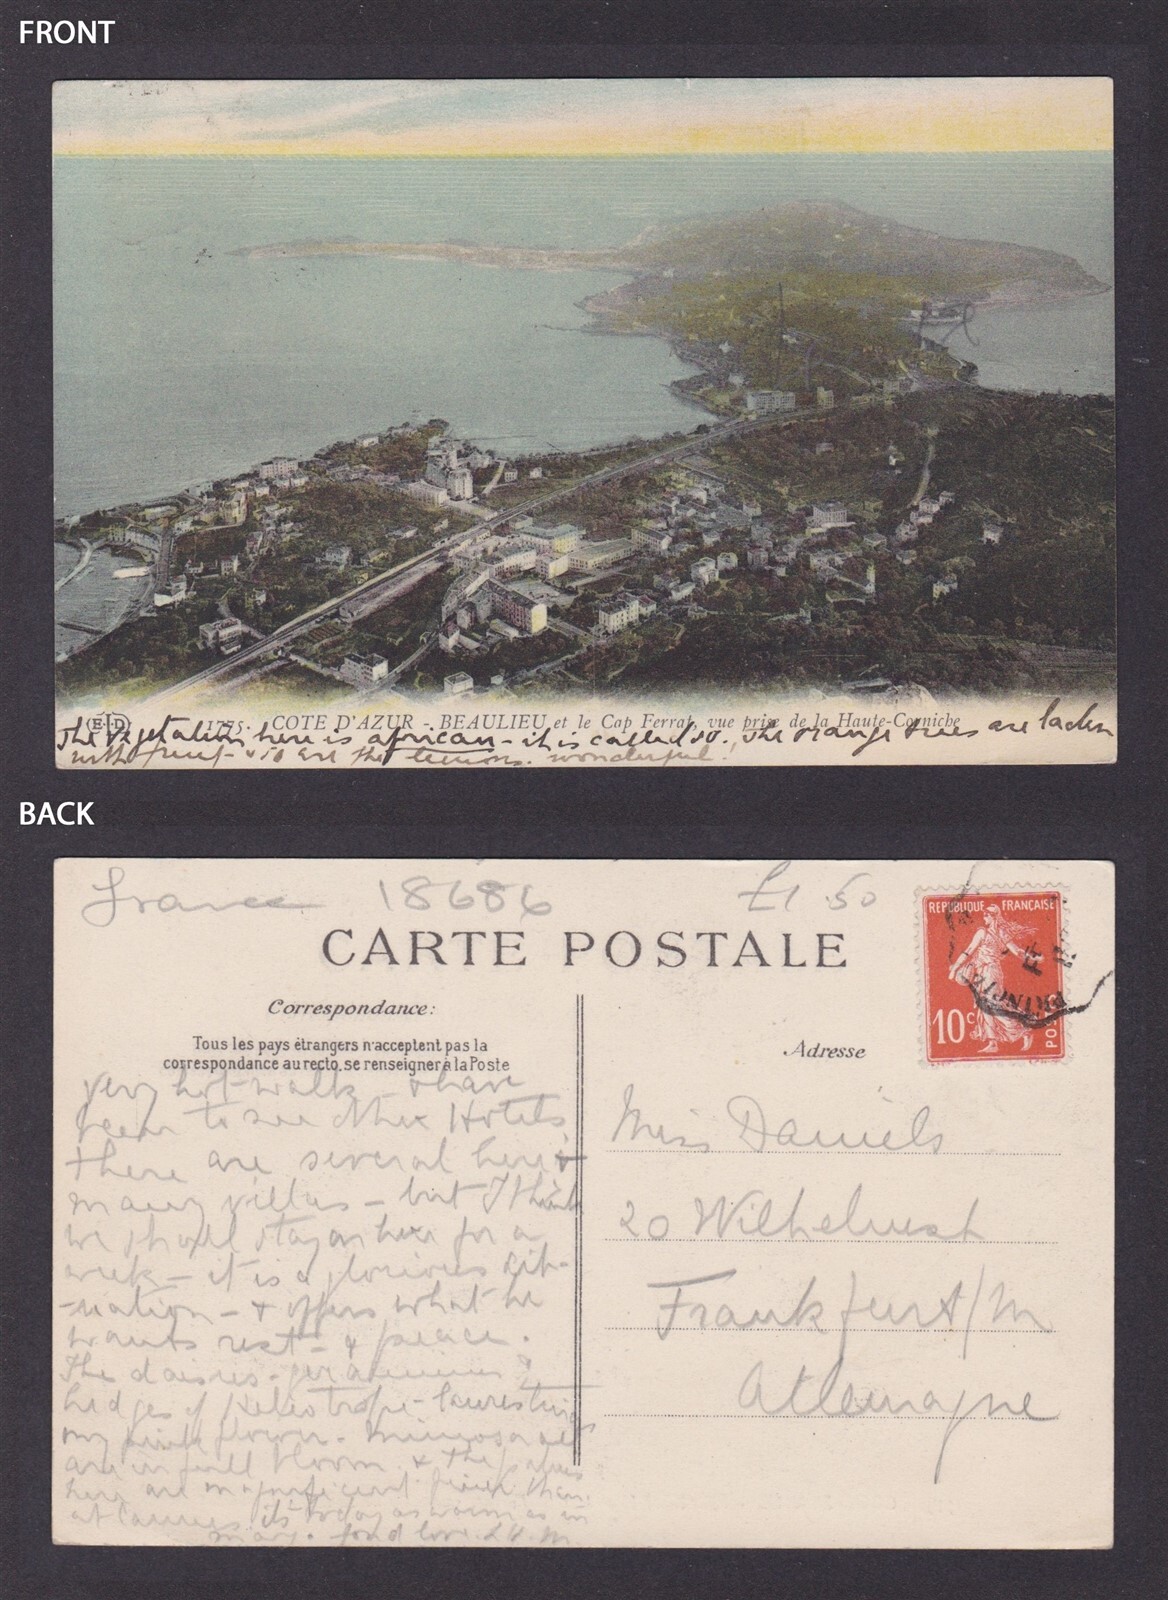 FRONT
E.L.D
1775. COTE D'AZUR - BEAULIEU et le Cap Ferrat, vue prise de la Haute-Corniche
The vegetation here is african - it is called so. The orange trees are laden
with fruit - & so are the lemons. wonderful.
BACK
France 18686 £1.50
CARTE POSTALE
REPUBLIQUE FRANÇAISE
10c
POSTES
Correspondance:
Tous les pays étrangers n'acceptent pas la
correspondance au recto, se renseigner à la Poste
Adresse
very hot walk - & have
been to see Hotels,
there are several here &
many villas - but I think
we shall stay on here for a
week - it is a glorious sit-
-uation - & offers what he
wants rest - & peace.
The daisies - geraniums &
hedges of heliotrope -
my pink flower - Mimosa
are in full bloom & the palms
here are magnificent finer than
at Cannes its today as warm as in
May. fond love
Miss Daniels
20
Frankfurt/M
Allemagne